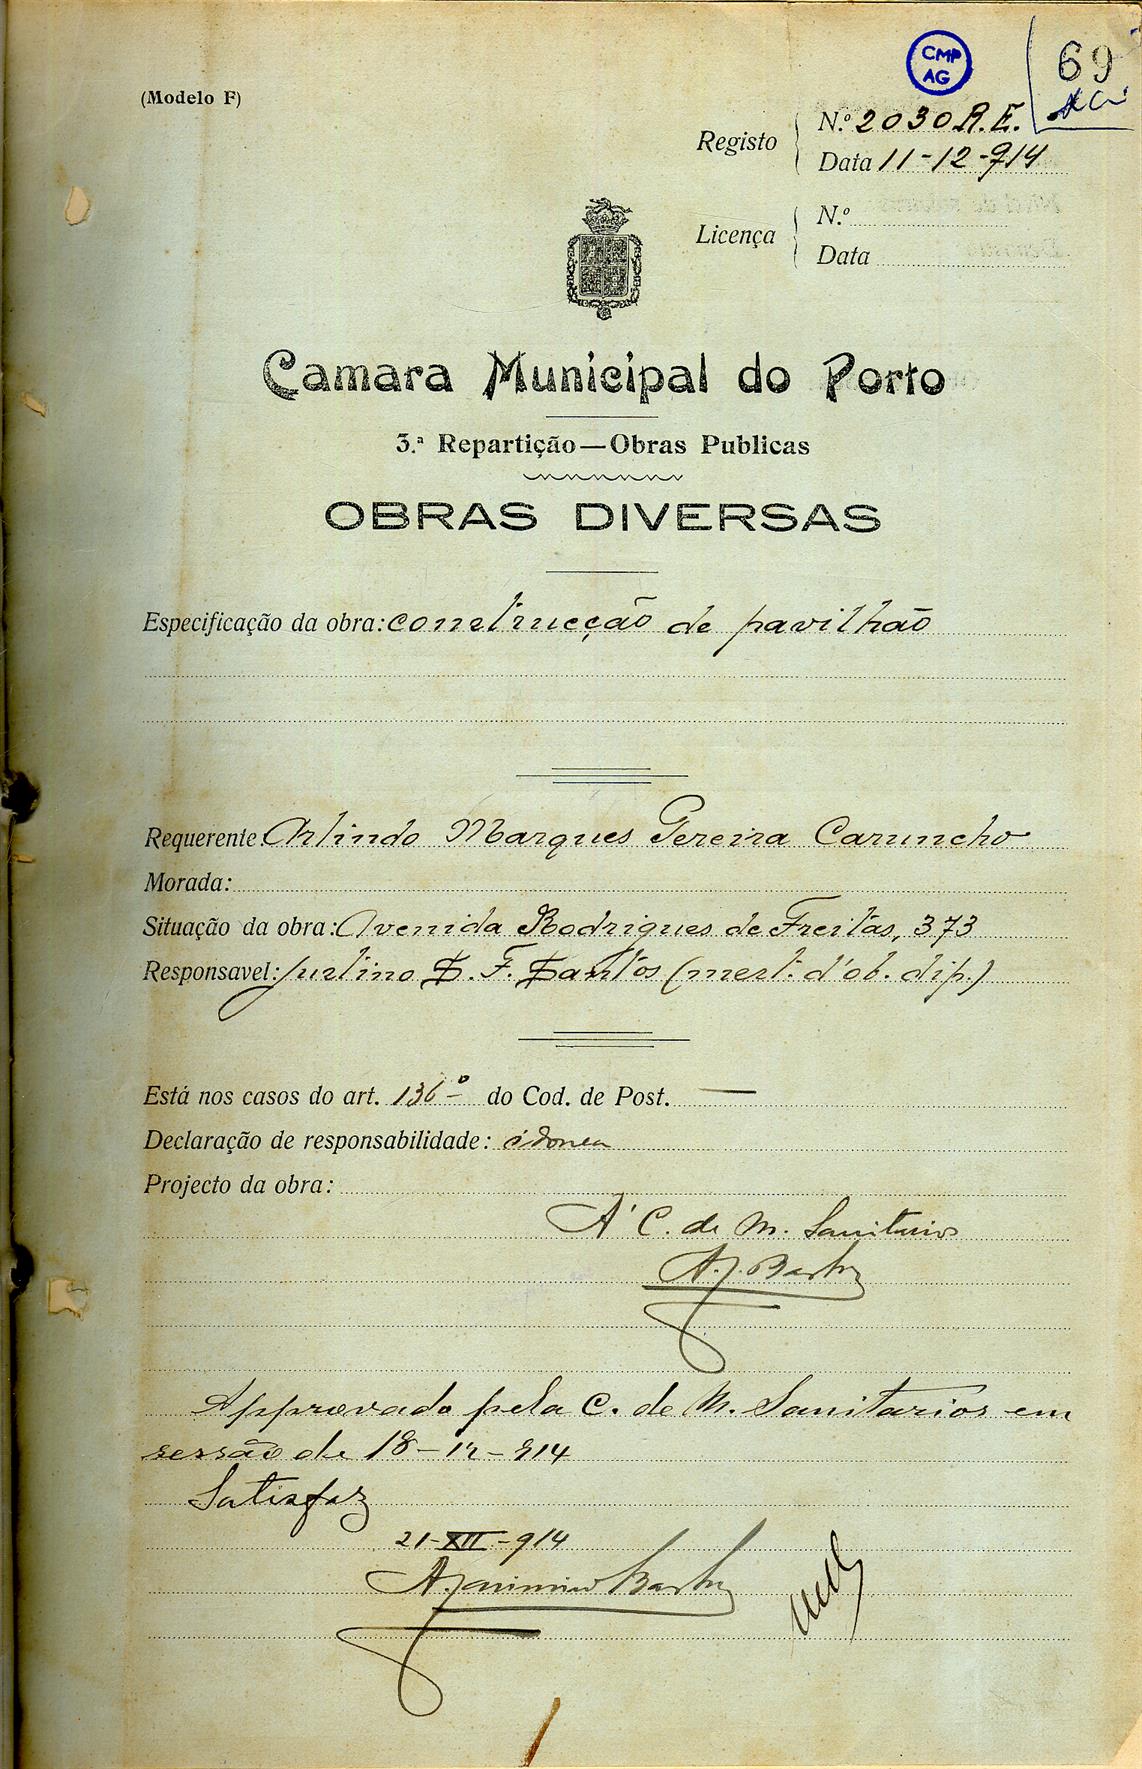 CMP
AG
69
(Modelo F)
Registo
N.º 2030 R.E.
Data 11-12-914
Licença
N.º
Data
Camara Municipal do Porto
3.ª Repartição—Obras Publicas
OBRAS DIVERSAS
Especificação da obra: construcção de pavilhão
Requerente: Arlindo Marques Pereira Caruncho
Morada:
Situação da obra: Avenida Rodrigues de Freitas, 373
Responsavel: Justino S. F. Santos (mest. d'ob. dip.)
Está nos casos do art. 136º do Cod. de Post. —
Declaração de responsabilidade: idonea
Projecto da obra:
A' C. de M. Sanitarios
A. J.
Approvado pela C. de M. Sanitarios em
sessão de 18-12-914
Satisfaz
21-XII-914